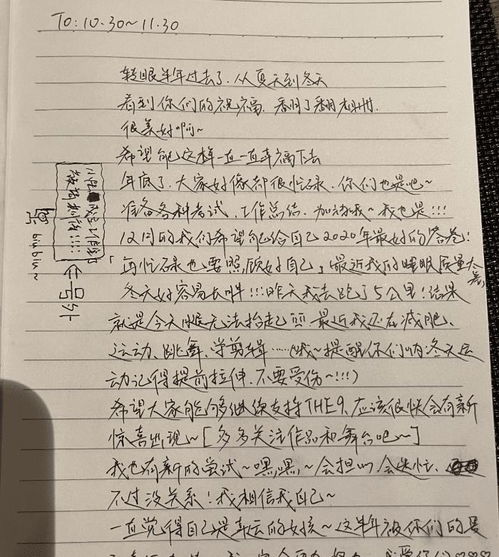 TO: 10.30~11.30
转眼半年过去了,从夏天到冬天
看到你们的祝福,翻了翻相册
很美好啊~
希望能这样一直一直幸福下去
年底了,大家好像都很忙碌,你们也是吧~
准备各科考试,工作总结,加油哦~我也是!!!
12月的我们希望能给自己2020年最好的答卷!
「再忙碌也要照顾好自己」最近我的睡眠质量太
冬天好容易长胖!!!昨天我去跑了5公里!结果
就是今天腿无法抬起 最近我还有减肥、
运动、跳舞、学剪辑……哦~提醒你们 冬天运
动记得提前拉伸,不要受伤~!!!)
希望大家能够继续支持THE9,应该很快会有新
惊喜出现~[多多关注作品和舞台吧~]
我也有新的尝试~嘿嘿~会担心会迷忙、
不过没关系!我相信我自己~
一直觉得自己是幸运的女孩~这半年被你们的
号外
biu biu~